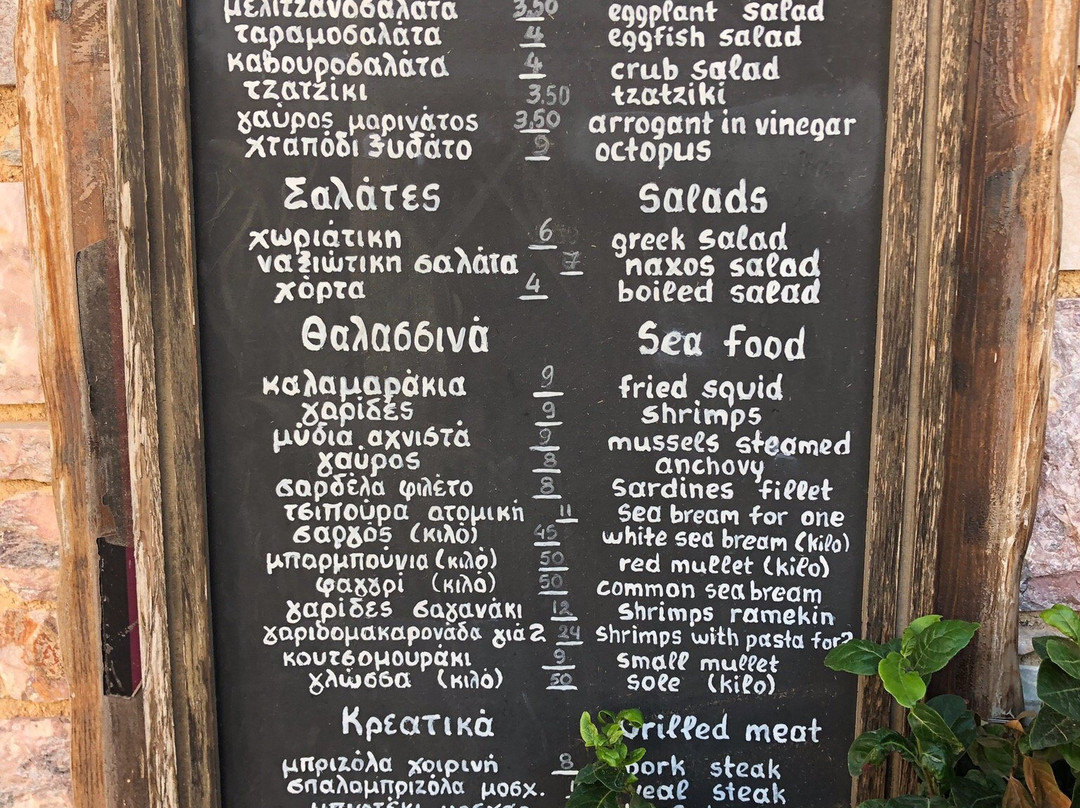 μελιτζανοσαλάτα 3,50 eggplant salad
ταραμοσαλάτα 4 eggfish salad
καβουροσαλάτα 4 crub salad
τζατζίκι 3.50 tzatziki
γαύρος μαρινάτος 3.50 arrogant in vinegar
χταπόδι ξυδάτο 9 octopus
Σαλάτες Salads
χωριάτικη 6 greek salad
ναξιώτικη σαλάτα 7 naxos salad
χόρτα 4 boiled salad
Θαλασσινά Sea food
καλαμαράκια 9 fried squid
γαρίδες 9 shrimps
μύδια αχνιστά 9 mussels steamed
γαύρος 8 anchovy
σαρδέλα φιλέτο 8 sardines fillet
τσιπούρα ατομική 11 sea bream for one
σαργός (κιλό) 45 white sea bream (kilo)
μπαρμπούνια (κιλό) 50 red mullet (kilo)
φαγγρί (κιλό) 50 common sea bream
γαρίδες σαγανάκι 12 shrimps ramekin
γαριδομακαρονάδα για 2 24 shrimps with pasta for 2
κουτσομουράκι 9 small mullet
γλώσσα (κιλό) 50 sole (kilo)
Κρεατικά Grilled meat
μπριζόλα χοιρινή 8 pork steak
σπαλομπριζόλα μοσχ. veal steak